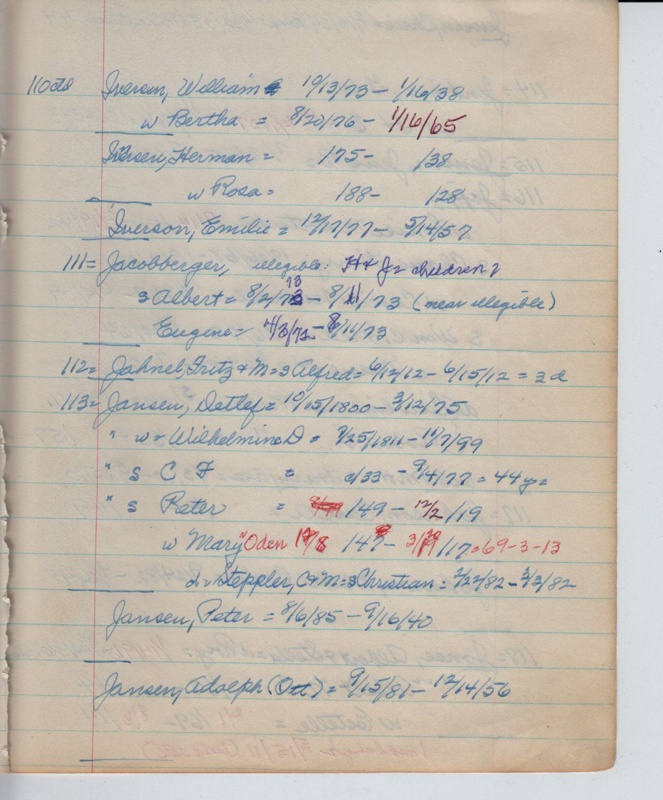 110 ctd Iverson, William 10/13/73 - 1/16/38
w Bertha = 8/20/76 - 1/16/65
Iversen, Herman = 175- 138
w Rosa = 188- 128
Iverson, Emilie = 12/17/77 - 5/14/57
111 = Jacobberger, illegible: H & J = children?
s Albert = 8/2/73 - 8/11/73 (near illegible)
Eugene = - 8/11/73
112 = Jahnel, Fritz & M = s Alfred = 6/12/12 - 6/15/12 = 3 d
113 = Jansen, Detlef = 10/15/1800 - 3/12/75
" w = Wilhelmine D = 7/25/1811 - 11/7/99
" s C F = d/33 - 9/4/77 = 44 y =
" s Peter = /49 - 12/2/19
w Mary "Oden 147 - 3/ /17 = 69-3-13
Steppler, C & M = s Christian = 2/22/82 - 3/3/82
Jansen, Peter = 8/6/85 - 9/16/40
Jansen, Adolph (Ott) = 9/15/81 - 12/14/56